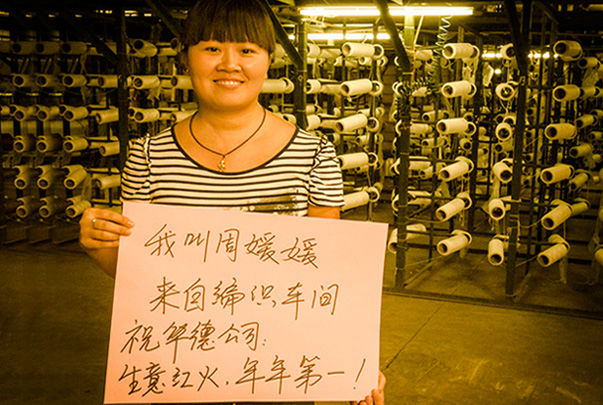 我叫周媛媛
来自缔织车间
祝华德公司：
生意红火，年年第一！